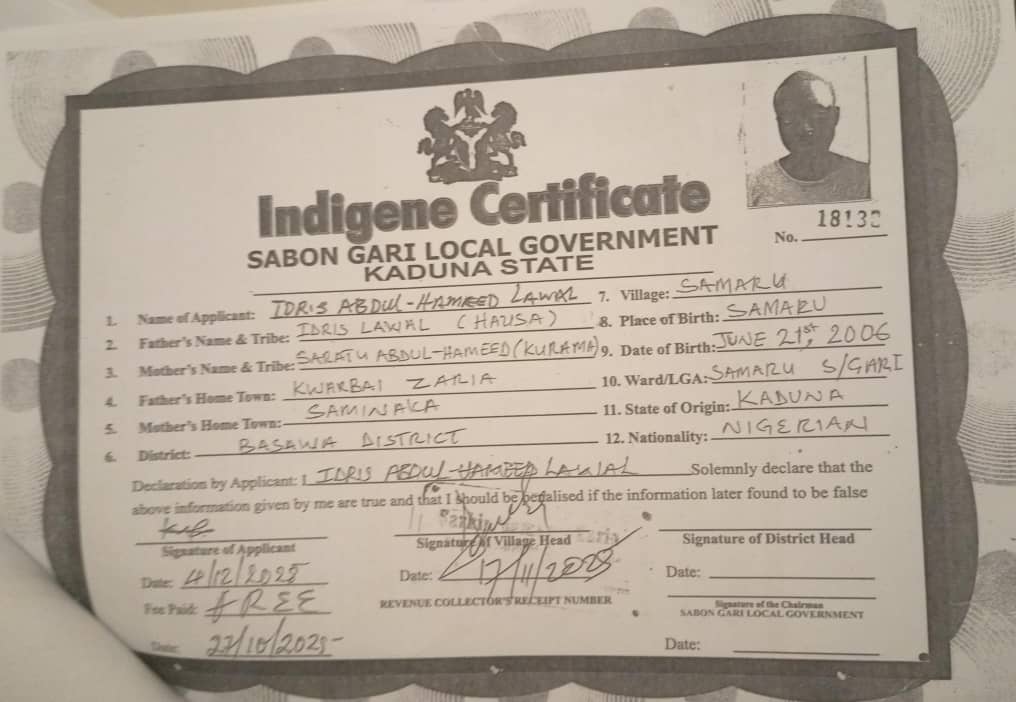 Indigene Certificate
SABON GARI LOCAL GOVERNMENT
KADUNA STATE
No. 1813
1. Name of Applicant: IDRIS ABDUL-HAMEED LAWAL
2. Father's Name & Tribe: IDRIS LAWAL (HAUSA)
3. Mother's Name & Tribe: SARATU ABDUL-HAMEED (KURAMA)
4. Father's Home Town: KWARBAI ZARIA
5. Mother's Home Town: SAMINAKA
6. District: BASAWA DISTRICT
7. Village: SAMARU
8. Place of Birth: SAMARU
9. Date of Birth: JUNE 21st, 2006
10. Ward/LGA: SAMARU S/GARI
11. State of Origin: KADUNA
12. Nationality: NIGERIAN
Declaration by Applicant: I IDRIS ABDUL-HAMEED LAWAL Solemnly declare that the
above information given by me are true and that I should be penalised if the information later found to be false
Signature of Applicant
Date: 4/12/2025
Fee Paid: FREE
Date: 27/10/2025
Signature of Village Head
Date: 17/11/2025
REVENUE COLLECTOR'S RECEIPT NUMBER
Signature of District Head
Date:
Signature of the Chairman
SABON GARI LOCAL GOVERNMENT
Date: